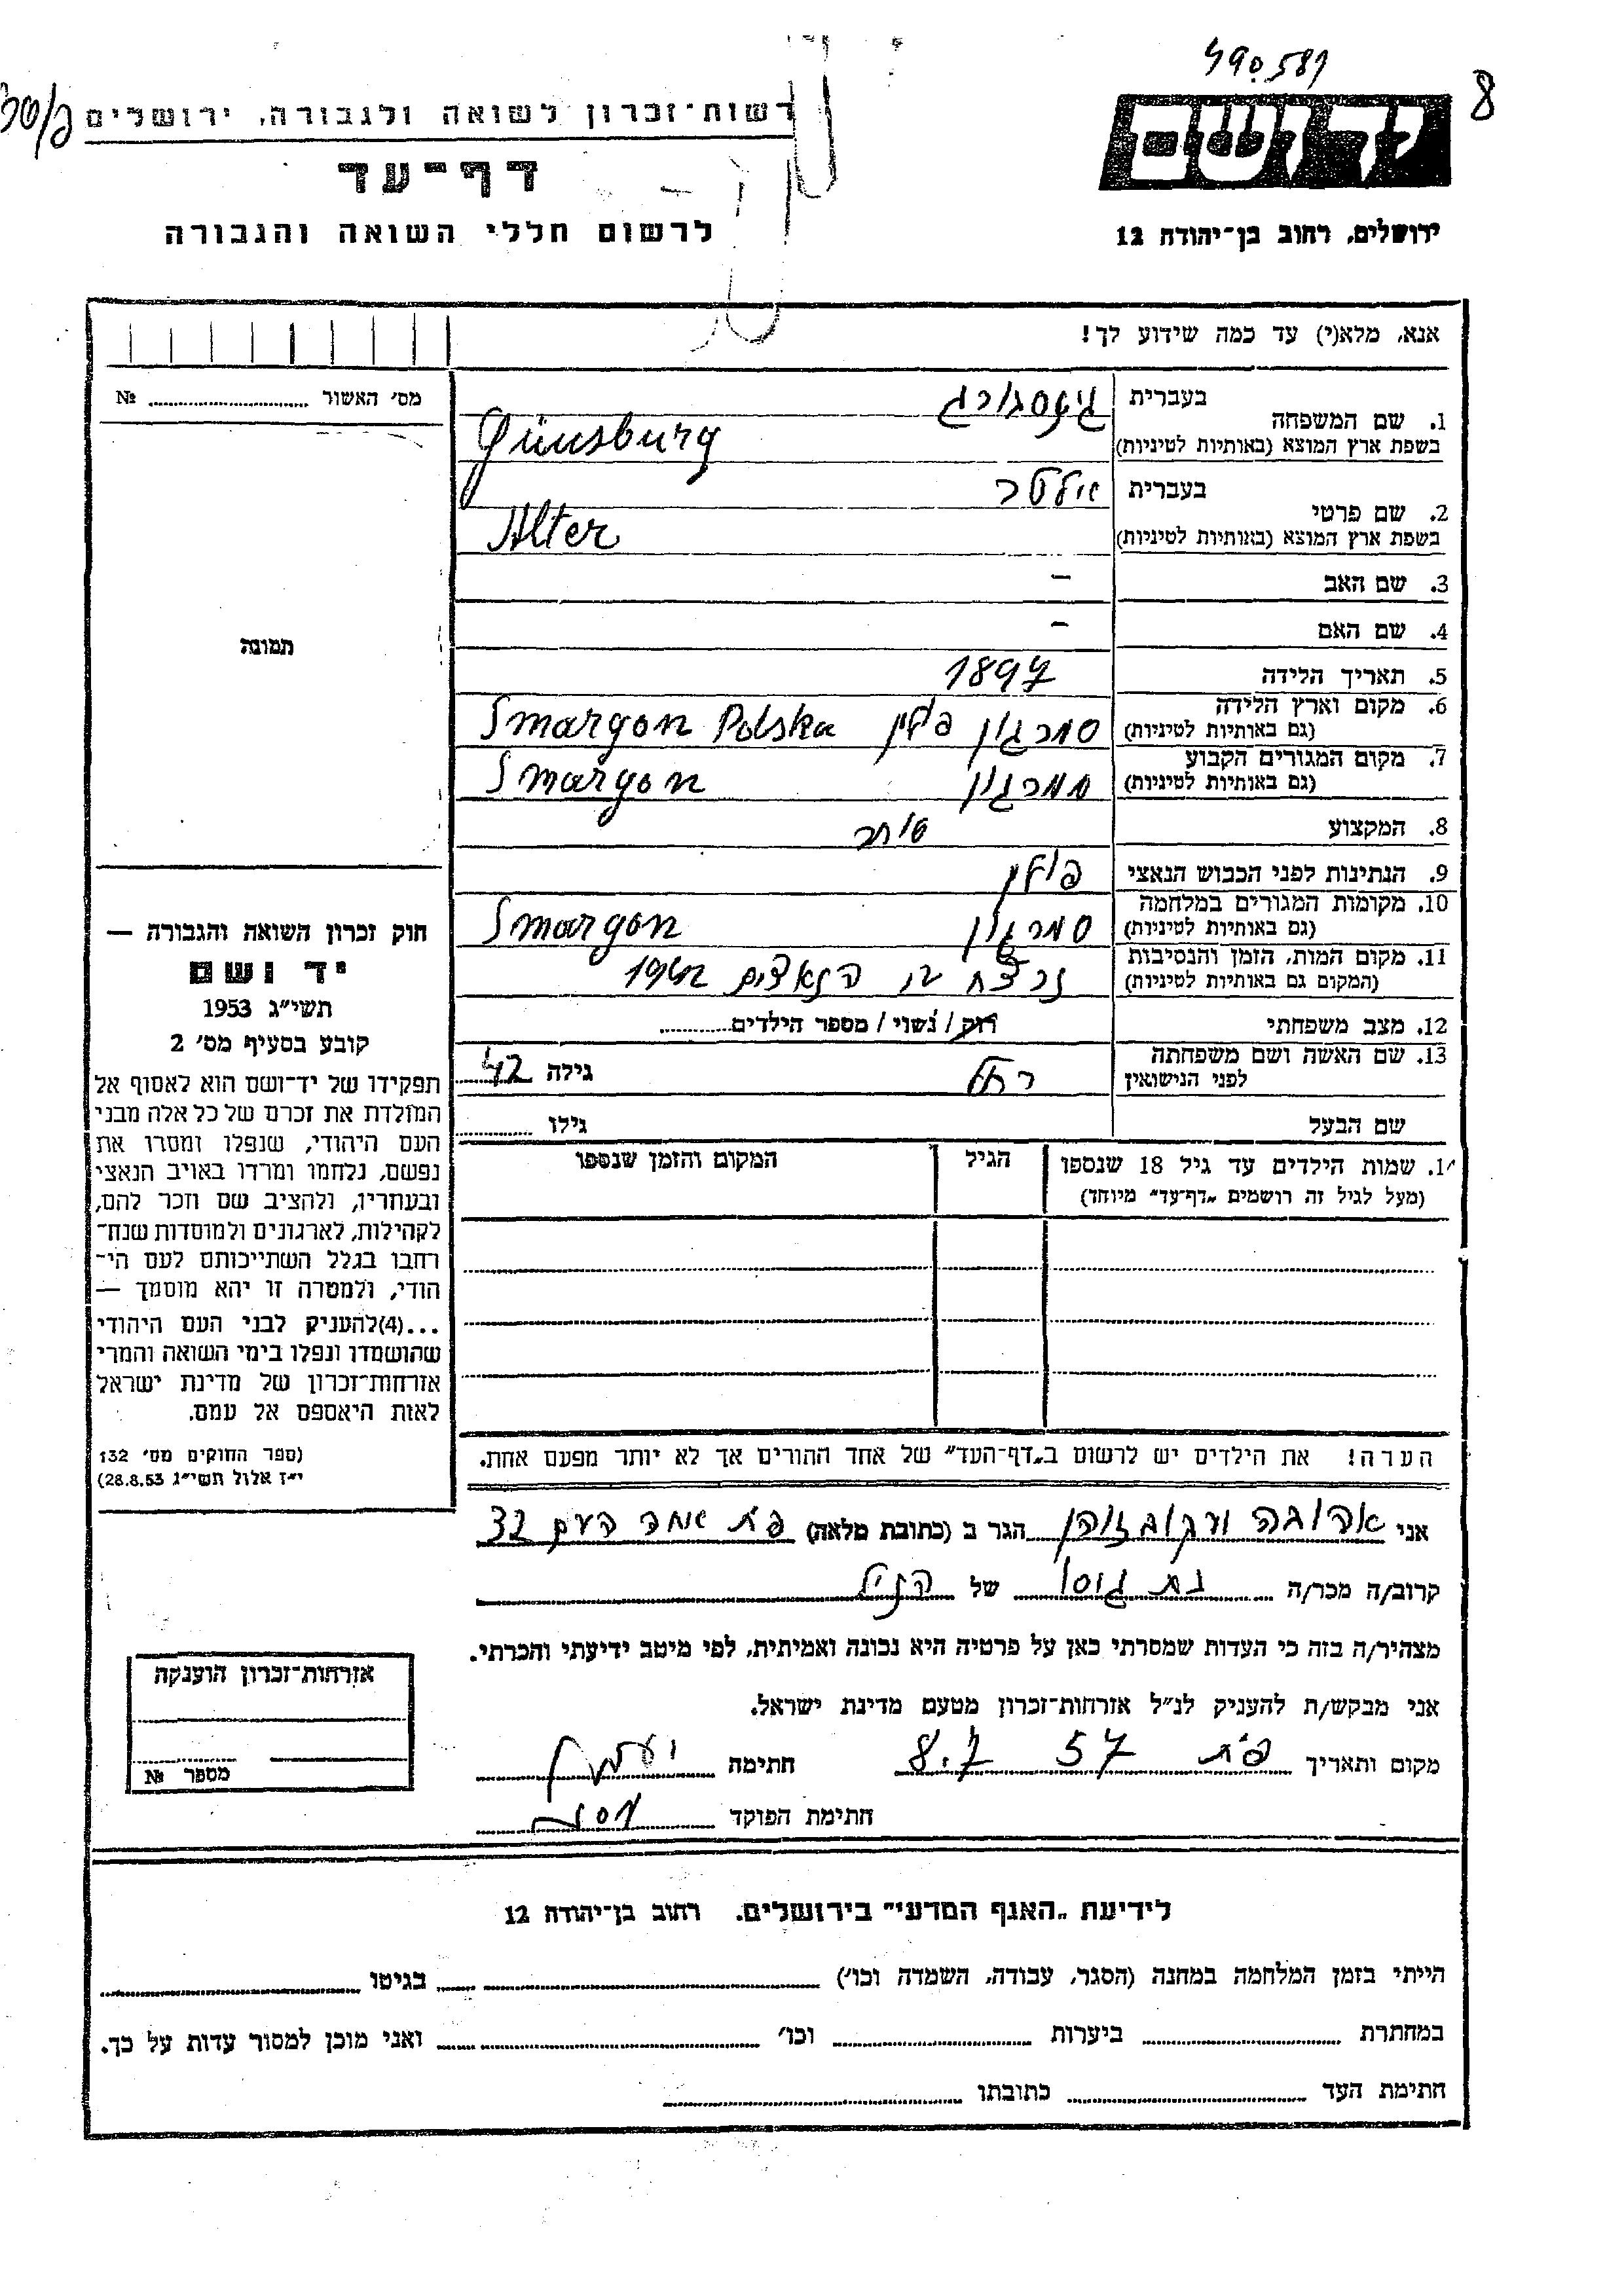 490581
8
רשות־זכרון לשואה ולגבורה, ירושלים
יד ושם
דף־עד
לרשום חללי השואה והגבורה
ירושלים, רחוב בן־יהודה 12
אנא, מלא(י) עד כמה שידוע לך!
מס׳ האשור № ........
1. שם המשפחה
בעברית גינסבורג
בשפת ארץ המוצא (באותיות לטיניות) Günsburg
2. שם פרטי
בעברית אלטר
בשפת ארץ המוצא (באותיות לטיניות) Alter
3. שם האב –
4. שם האם –
5. תאריך הלידה 1897
6. מקום וארץ הלידה
(גם באותיות לטיניות) סמרגון פולין Smargon Polska
7. מקום המגורים הקבוע
(גם באותיות לטיניות) סמרגון Smargon
8. המקצוע סוחר
9. הנתינות לפני הכבוש הנאצי פולין
10. מקומות המגורים במלחמה
(גם באותיות לטיניות) סמרגון Smargon
11. מקום המות, הזמן והנסיבות
(המקום גם באותיות לטיניות) נרצח ע״י הנאצים 1942
12. מצב משפחתי רוק / נשוי / מספר הילדים........
13. שם האשה ושם משפחתה
לפני הנישואין רחל גילה 42
שם הבעל גילו ........
14. שמות הילדים עד גיל 18 שנספו הגיל המקום והזמן שנספו
(מעל לגיל זה רושמים „דף־עד״ מיוחד)
הערה! את הילדים יש לרשום ב„דף־העד״ של אחד ההורים אך לא יותר מפעם אחת.
תמונה
חוק זכרון השואה והגבורה —
יד ושם
תשי״ג 1953
קובע בסעיף מס׳ 2
תפקידו של יד־ושם הוא לאסוף אל
המולדת את זכרם של כל אלה מבני
העם היהודי, שנפלו ומסרו את
נפשם, נלחמו ומרדו באויב הנאצי
ובעוזריו, ולהציב שם וזכר להם,
לקהילות, לארגונים ולמוסדות שנח־
רבו בגלל השתייכותם לעם הי־
הודי, ולמטרה זו יהא מוסמך —
...(4)להעניק לבני העם היהודי
שהושמדו ונפלו בימי השואה והמרי
אזרחות־זכרון של מדינת ישראל
לאות היאספם אל עמם.
(ספר החוקים מס׳ 132
י״ז אלול תשי״ג 28.8.53)
אני אהובה הגר ב (כתובת מלאה) פ״ת אחד העם 32
קרוב/ה מכר/ה בת גיסו של הנ״ל
מצהיר/ה בזה כי העדות שמסרתי כאן על פרטיה היא נכונה ואמיתית, לפי מיטב ידיעתי והכרתי.
אני מבקש/ת להעניק לנ״ל אזרחות־זכרון מטעם מדינת ישראל.
מקום ותאריך פ״ת 8.7 57 חתימה
חתימת הפוקד
אזרחות־זכרון הוענקה
מספר №
לידיעת „האגף המדעי״ בירושלים. רחוב בן־יהודה 12
הייתי בזמן המלחמה במחנה (הסגר, עבודה, השמדה וכו׳) ........ בגיטו ........
במחתרת ........ ביערות ........ וכו׳ ........ ואני מוכן למסור עדות על כך.
חתימת העד ........ כתובתו ........